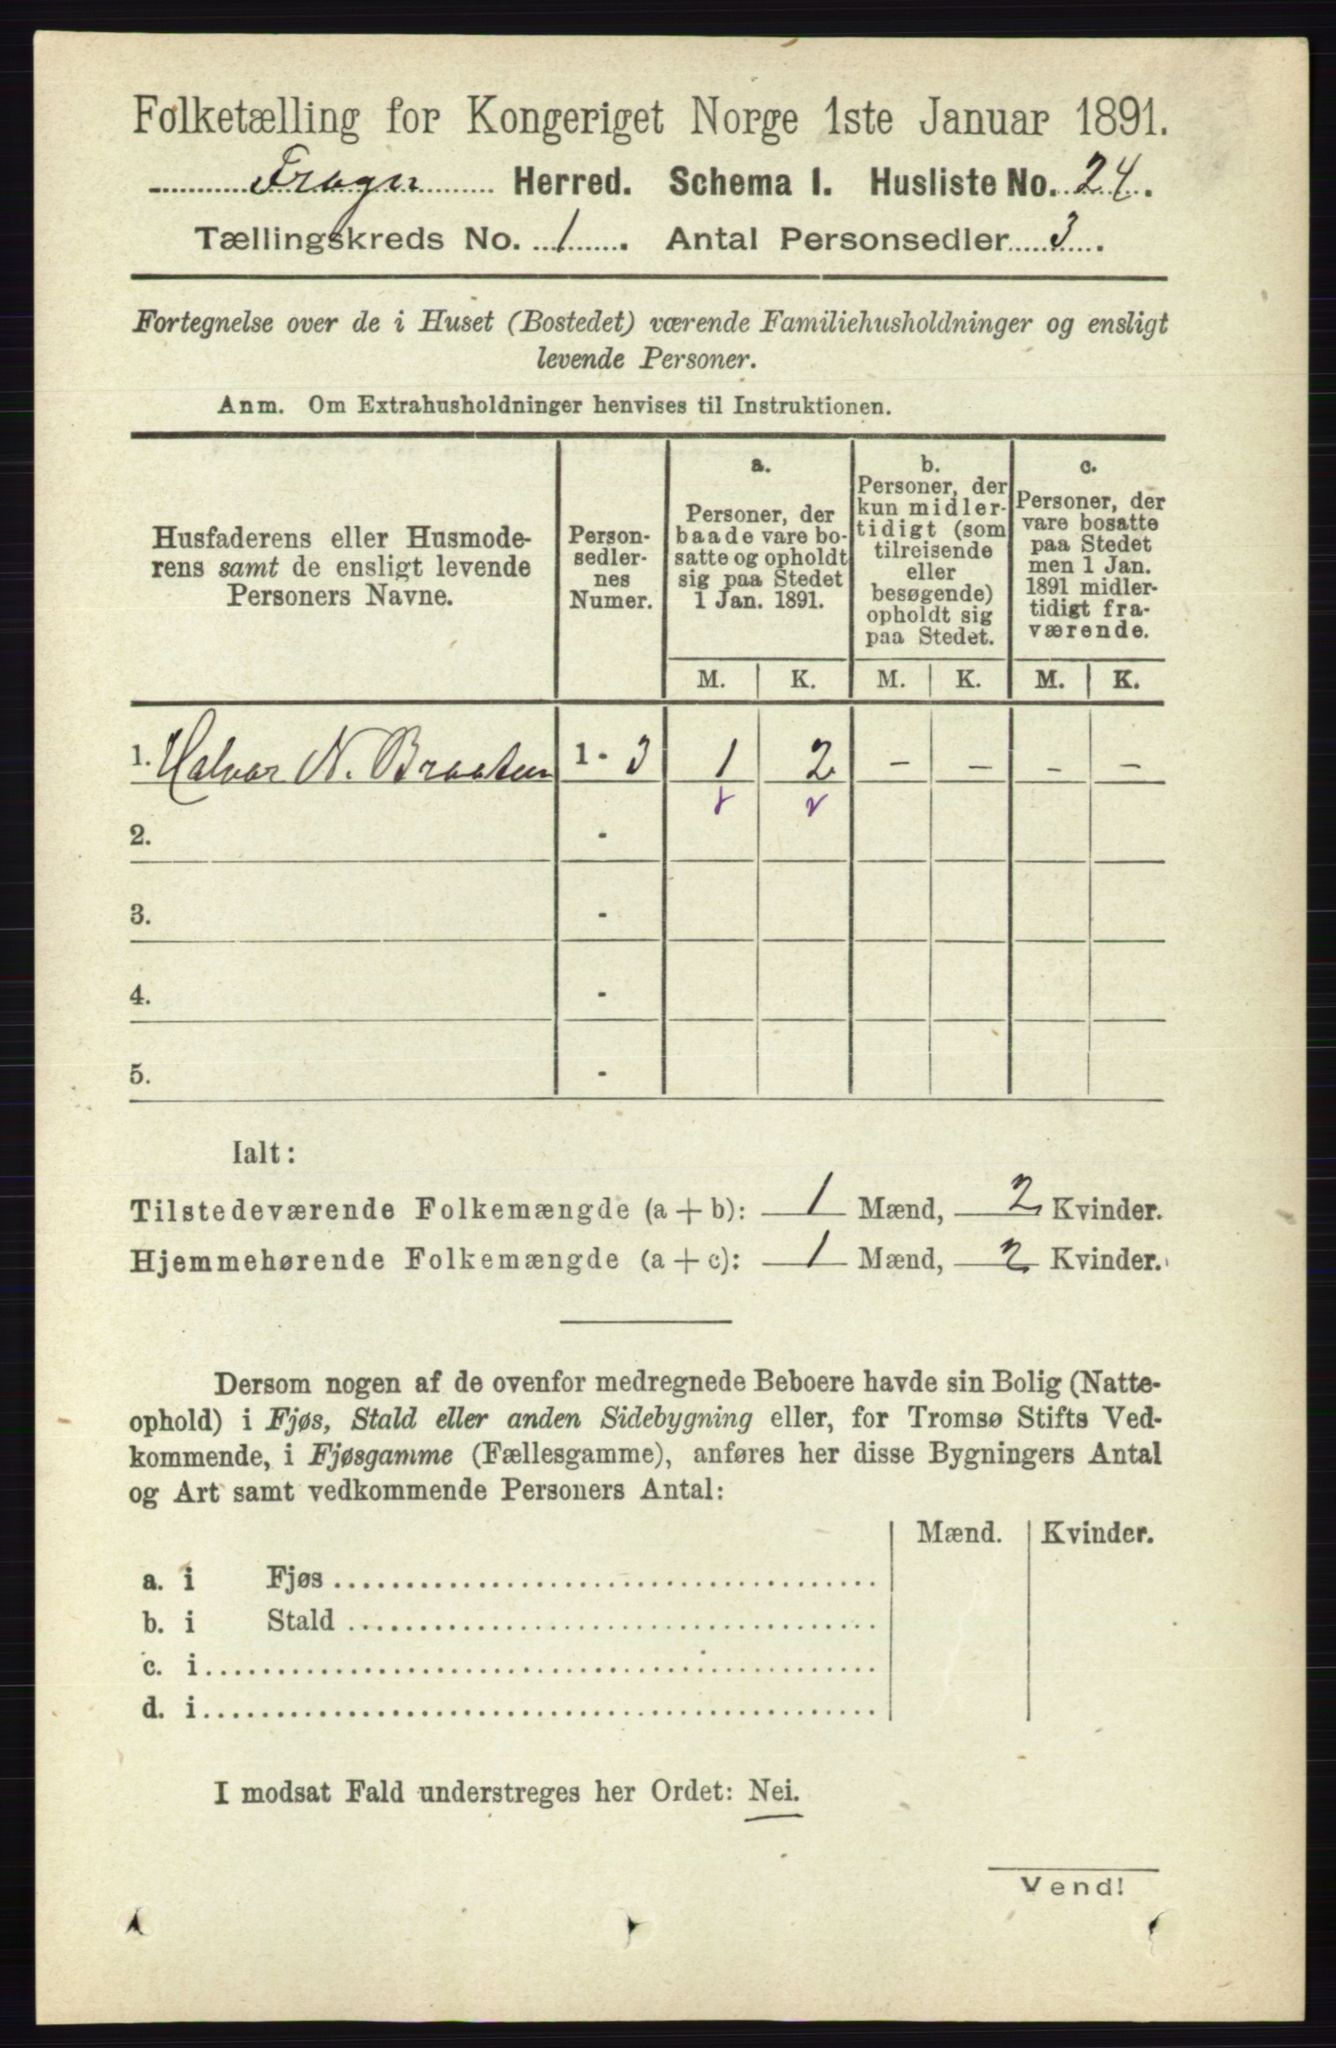 Folketælling for Kongeriget Norge 1ste Januar 1891.
Frogn Herred. Schema I. Husliste No. 24.
Tællingskreds No. 1. Antal Personsedler 3.
Fortegnelse over de i Huset (Bostedet) værende Familiehusholdninger og ensligt
levende Personer.
Anm. Om Extrahusholdninger henvises til Instruktionen.
Husfaderens eller Husmode-
rens samt de ensligt levende
Personers Navne.
Person-
sedler-
nes
Numer.
a.
Personer, der
baade vare bo-
satte og opholdt
sig paa Stedet
1 Jan. 1891.
b.
Personer, der
kun midler-
tidigt (som
tilreisende
eller
besøgende)
opholdt sig
paa Stedet.
c.
Personer, der
vare bosatte
paa Stedet
men 1 Jan.
1891 midler-
tidigt fra-
værende.
M. K. M. K. M. K.
1. Halvor N. Braaten 1 - 3 1 2 - - - -
2. -
3. -
4. -
5. -
Ialt:
Tilstedeværende Folkemængde (a + b): 1 Mænd, 2 Kvinder.
Hjemmehørende Folkemængde (a + c): 1 Mænd, 2 Kvinder.
Dersom nogen af de ovenfor medregnede Beboere havde sin Bolig (Natte-
ophold) i Fjøs, Stald eller anden Sidebygning eller, for Tromsø Stifts Ved-
kommende, i Fjøsgamme (Fællesgamme), anføres her disse Bygningers Antal
og Art samt vedkommende Personers Antal:
Mænd. Kvinder.
a. i Fjøs
b. i Stald
c. i
d. i
I modsat Fald understreges her Ordet: Nei.
Vend!